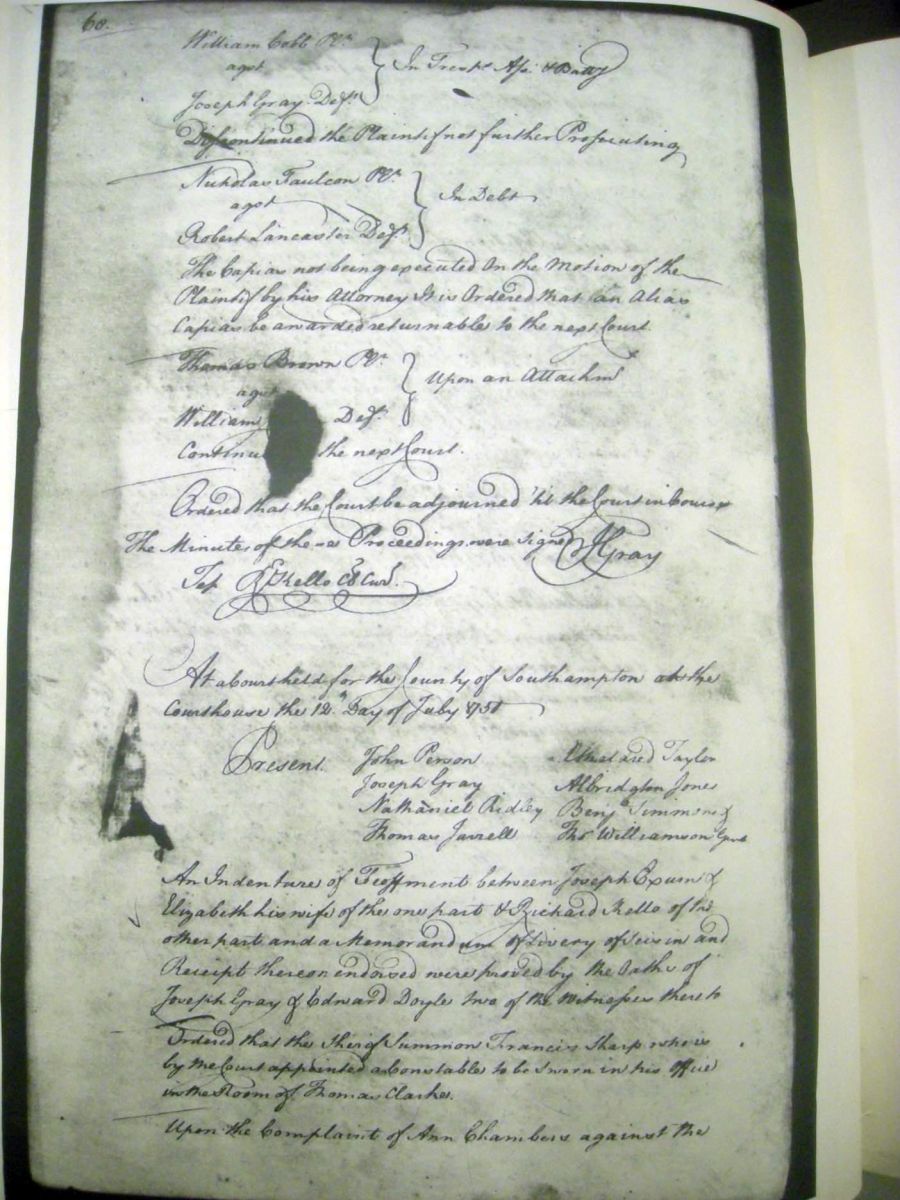 60.
William Cobb Pl.r
agst
Joseph Gray Def.t
In Tresp.s Ass.t & Batt.y
Discontinued the Plaintif not further Prosecuting
Nicholas Faulcon Pl.r
agst
Robert Lancaster Def.t
In Debt
The Capias not being executed On the Motion of the
Plaintif by his Attorney It is Ordered that an Alias
Capias be awarded returnable to the next Court.
Thomas Brown Pl.r
agst
William Def.t
Upon an Attachm.t
Continu the next Court.
Ordered that the Court be adjourned 'til the Court in Course
The Minutes of these Proceedings were Signed J Gray
Test R.d Kello Cl Cur.
At a Court held for the County of Southampton at the
Courthouse the 12.th Day of July 1751
Present. John Person Etheldred Taylor
Joseph Gray Albridgton Jones
Nathaniel Ridley Benj.a Simmons &
Thomas Jarrell Tho.s Williamson Gent
An Indenture of Feoffment between Joseph Exum &
Elizabeth his wife of the one part & Richard Kello of the
other part and a Memorandum of Livery of Seisin and
Receipt thereon endorsed were proved by the Oaths of
Joseph Gray & Edward Doyle two of the Witnesses thereto
Ordered that the Sherif Summon Francis Sharp who is
by the Court appointed a Constable to be Sworn in his Office
in the Room of Thomas Clarke.
Upon the Complaint of Ann Chambers against the